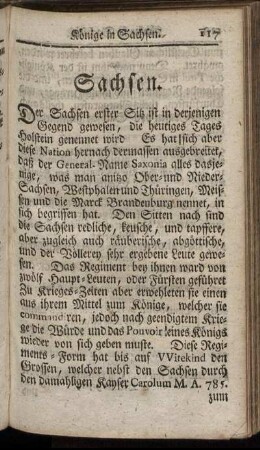 Könige in Sachsen. 117
Sachsen.
Der Sachsen erster Sitz ist in derjenigen
Gegend gewesen, die heutiges Tages
Holstein genennet wird. Es hat sich aber
diese Nation hernach dermassen ausgebreitet,
daß der General-Name Saxonia alles dasje-
nige, was man anitzo Ober- und Nieder-
Sachsen, Westphalen und Thüringen, Meis-
sen und die Marck Brandenburg nennet, in
sich begriffen hat. Den Sitten nach sind
die Sachsen redliche, keusche, und tapffere,
aber zugleich auch räuberische, abgöttische,
und der Völlerey sehr ergebene Leute gewe-
sen. Das Regiment bey ihnen ward von
zwölf Haupt-Leuten, oder Fürsten geführet
Zu Krieges-Zeiten aber erwehleten sie einen
aus ihrem Mittel zum Könige, welcher sie
commandiren, jedoch nach geendigtem Krie-
ge die Würde und das Pouvoir seines Königs
wieder von sich geben muste. Diese Regi-
ments-Form hat bis auf VVitekind den
Grossen, welcher nebst den Sachsen durch
den damahligen Kayser Carolum M. A. 785.
zum